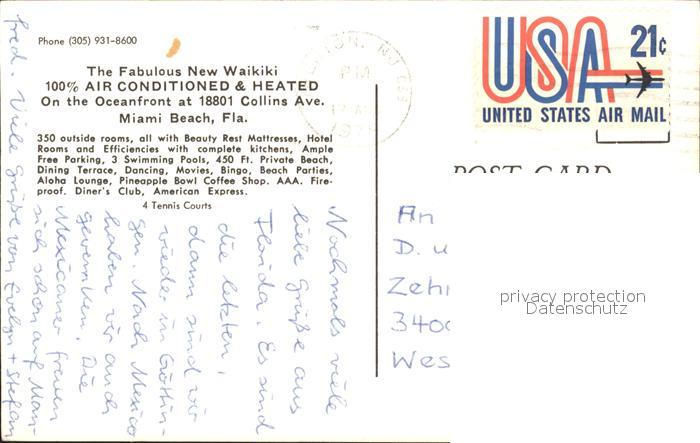 Phone (305) 931-8600
The Fabulous New Waikiki
100% AIR CONDITIONED & HEATED
On the Oceanfront at 18801 Collins Ave.
Miami Beach, Fla.
350 outside rooms, all with Beauty Rest Mattresses, Hotel
Rooms and Efficiencies with complete kitchens, Ample
Free Parking, 3 Swimming Pools, 450 Ft. Private Beach,
Dining Terrace, Dancing, Movies, Bingo, Beach Parties,
Aloha Lounge, Pineapple Bowl Coffee Shop. AAA. Fire-
proof. Diner's Club, American Express.
4 Tennis Courts
Nochmals viele
liebe Grüße aus
Florida. Es sind
die letzten,
dann sind wir
wieder in Göttin-
gen. Nach Mexico
haben wir auch
gewunken. Die
Mexicaner freuen
sich schon auf Man-
fred. Viele Grüße von Evelyn + Stefan
PM
USA 21c
UNITED STATES AIR MAIL
POST CARD
An
D. u
Zeh
3400
Wes
privacy protection
Datenschutz